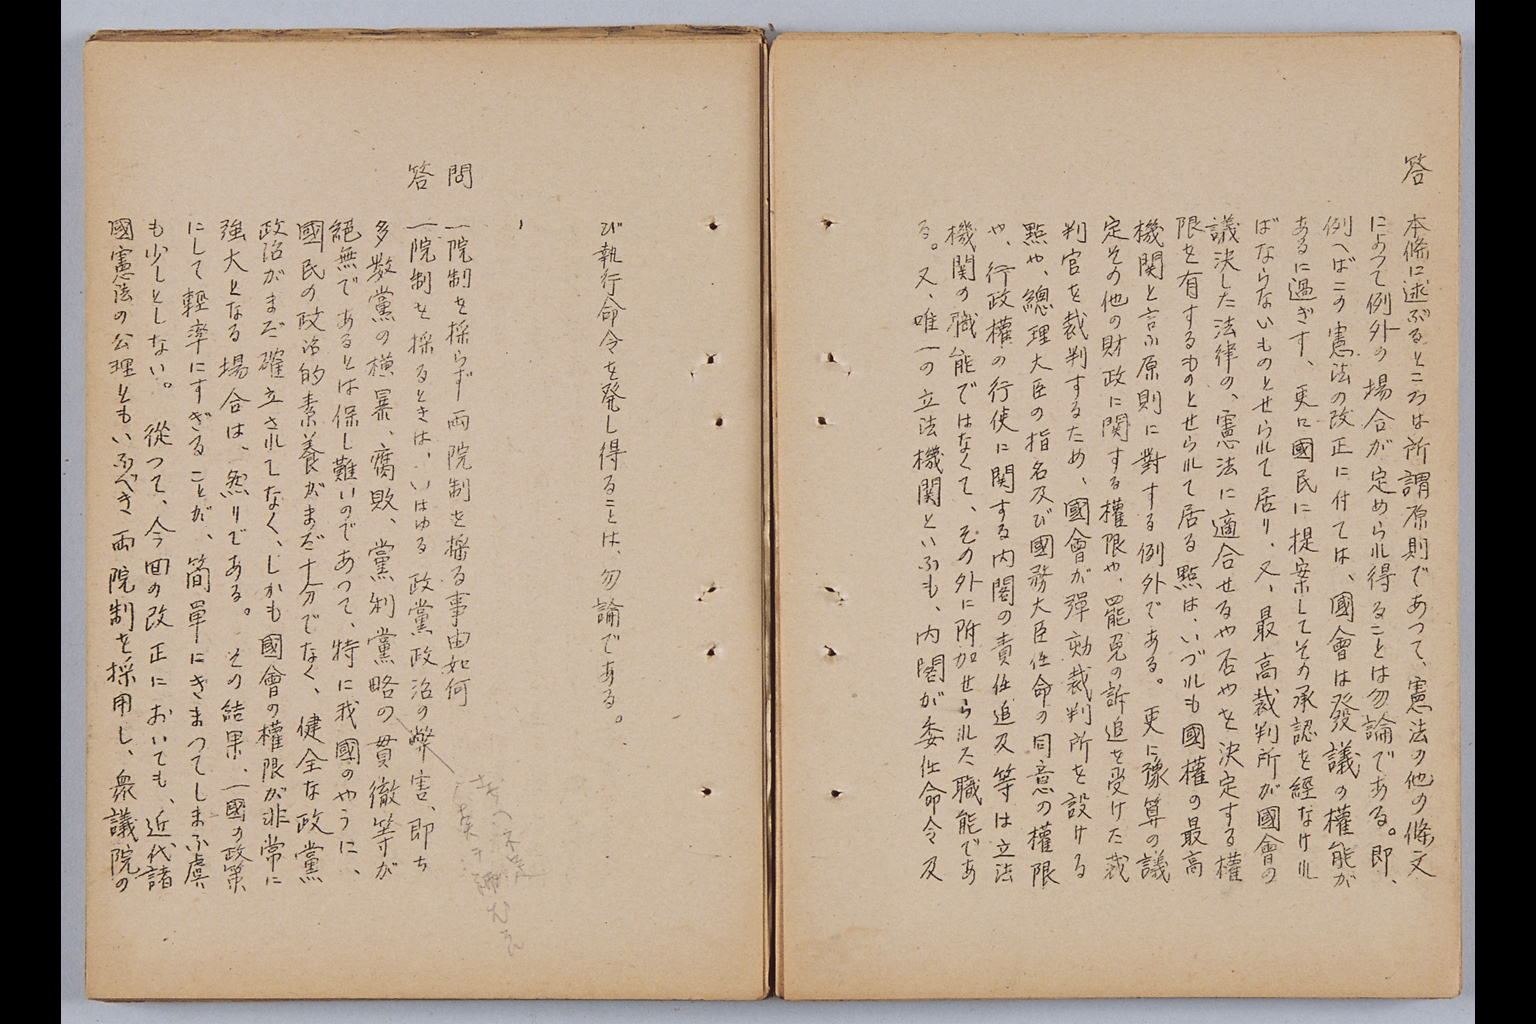 答
本條に述ぶるところは所謂原則であつて、憲法の他の條文
によつて例外の場合が定められ得ることは勿論である。即、
例へばこの憲法の改正に付ては、國會は發議の權能が
あるに過ぎず、更に國民に提案してその承認を経なけれ
ばならないものとせられて居り、又、最高裁判所が國會の
議決した法律の、憲法に適合せるや否やを決定する權
限を有するものとせられて居る點は、いづれも國權の最高
機関と言ふ原則に對する例外である。更に豫算の議
定その他の財政に関する權限や、罷免の訴追を受けた裁
判官を裁判するため、國會が彈劾裁判所を設ける
點や、總理大臣の指名及び國務大臣任命の同意の權限
や、行政權の行使に関する内閣の責任追及等は立法
機関の職能ではなくて、その外に附加せられた職能であ
る。又、唯一の立法機関といふも、内閣が委任命令及
び執行命令を発し得ることは、勿論である。
、
問 一院制を採らず両院制を採る事由如何
答 一院制を採るときは、いはゆる政黨政治の弊害、即ち
多数黨の横暴、腐敗、黨利黨略の貫徹等が
絕無であるとは保し難いのであつて、特に我國のやうに、
國民の政治的素養がまだ十分でなく、健全な政黨
政治がまだ確立されてなく、しかも國會の權限が非常に
強大となる場合は、然りである。その結果、一國の政策
にして輕率にすぎることが、簡單にきまつてしまふ虞
も少しとしない。從つて、今回の改正においても、近代諸
國憲法の公理ともいふべき両院制を採用し、衆議院の